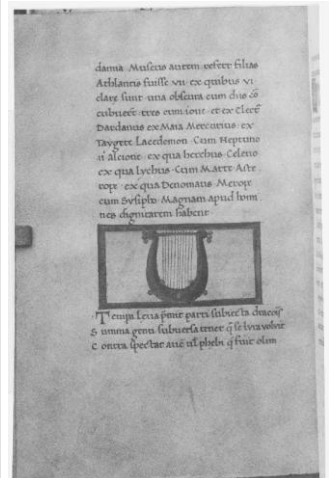 darma Museus autem refert filias
Athlantis fuisse vii ex quibus vi
clare sunt una obscura cum diis co
cubuer tres cum ioue et ex Electr
Dardanus ex Maia Mercurius ex
Taygete Lacedemon Cum Neptuno
ii alcione ex qua Celerio
ex qua lychus Cum Marte Aste
rope ex qua Oenomaus Merope
cum Sysipho Magnam apud homi
nes dignitatem habent
Tempa Leua pmit parti subiecta
Summa genu subuersa tenet q se lyra voluit
Contra spectat aue ul phebi q fuit olim